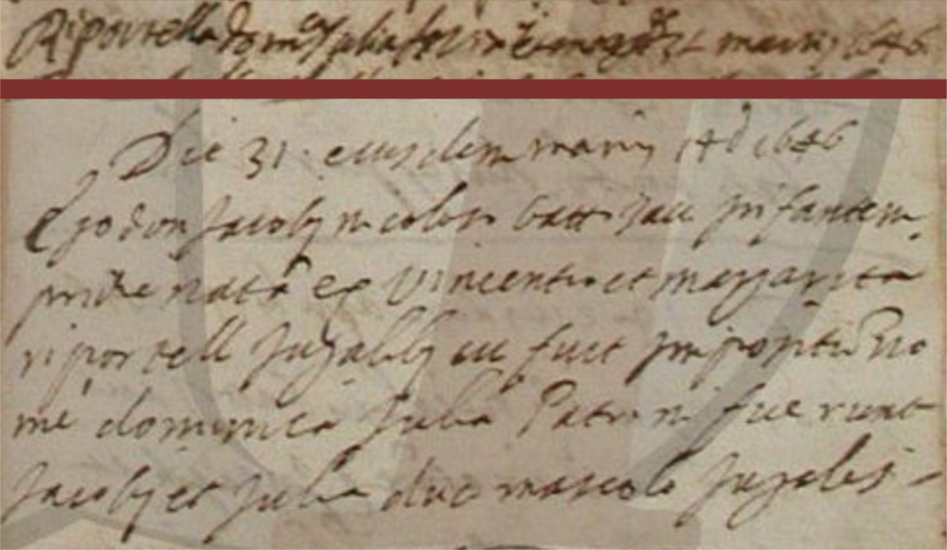 Riportella Dom.ca Julia 31 marty 1646
Die 31 eiusdem marty 1646
Ego don Jacobus nicolosi batt. Jau infantem
pridie natã ex Vincentio et margarita
riportell Jugalibus cui fuit impositũ no
me dominica Julia Patrini fuerunt
Jacobus et Julia Jugales -